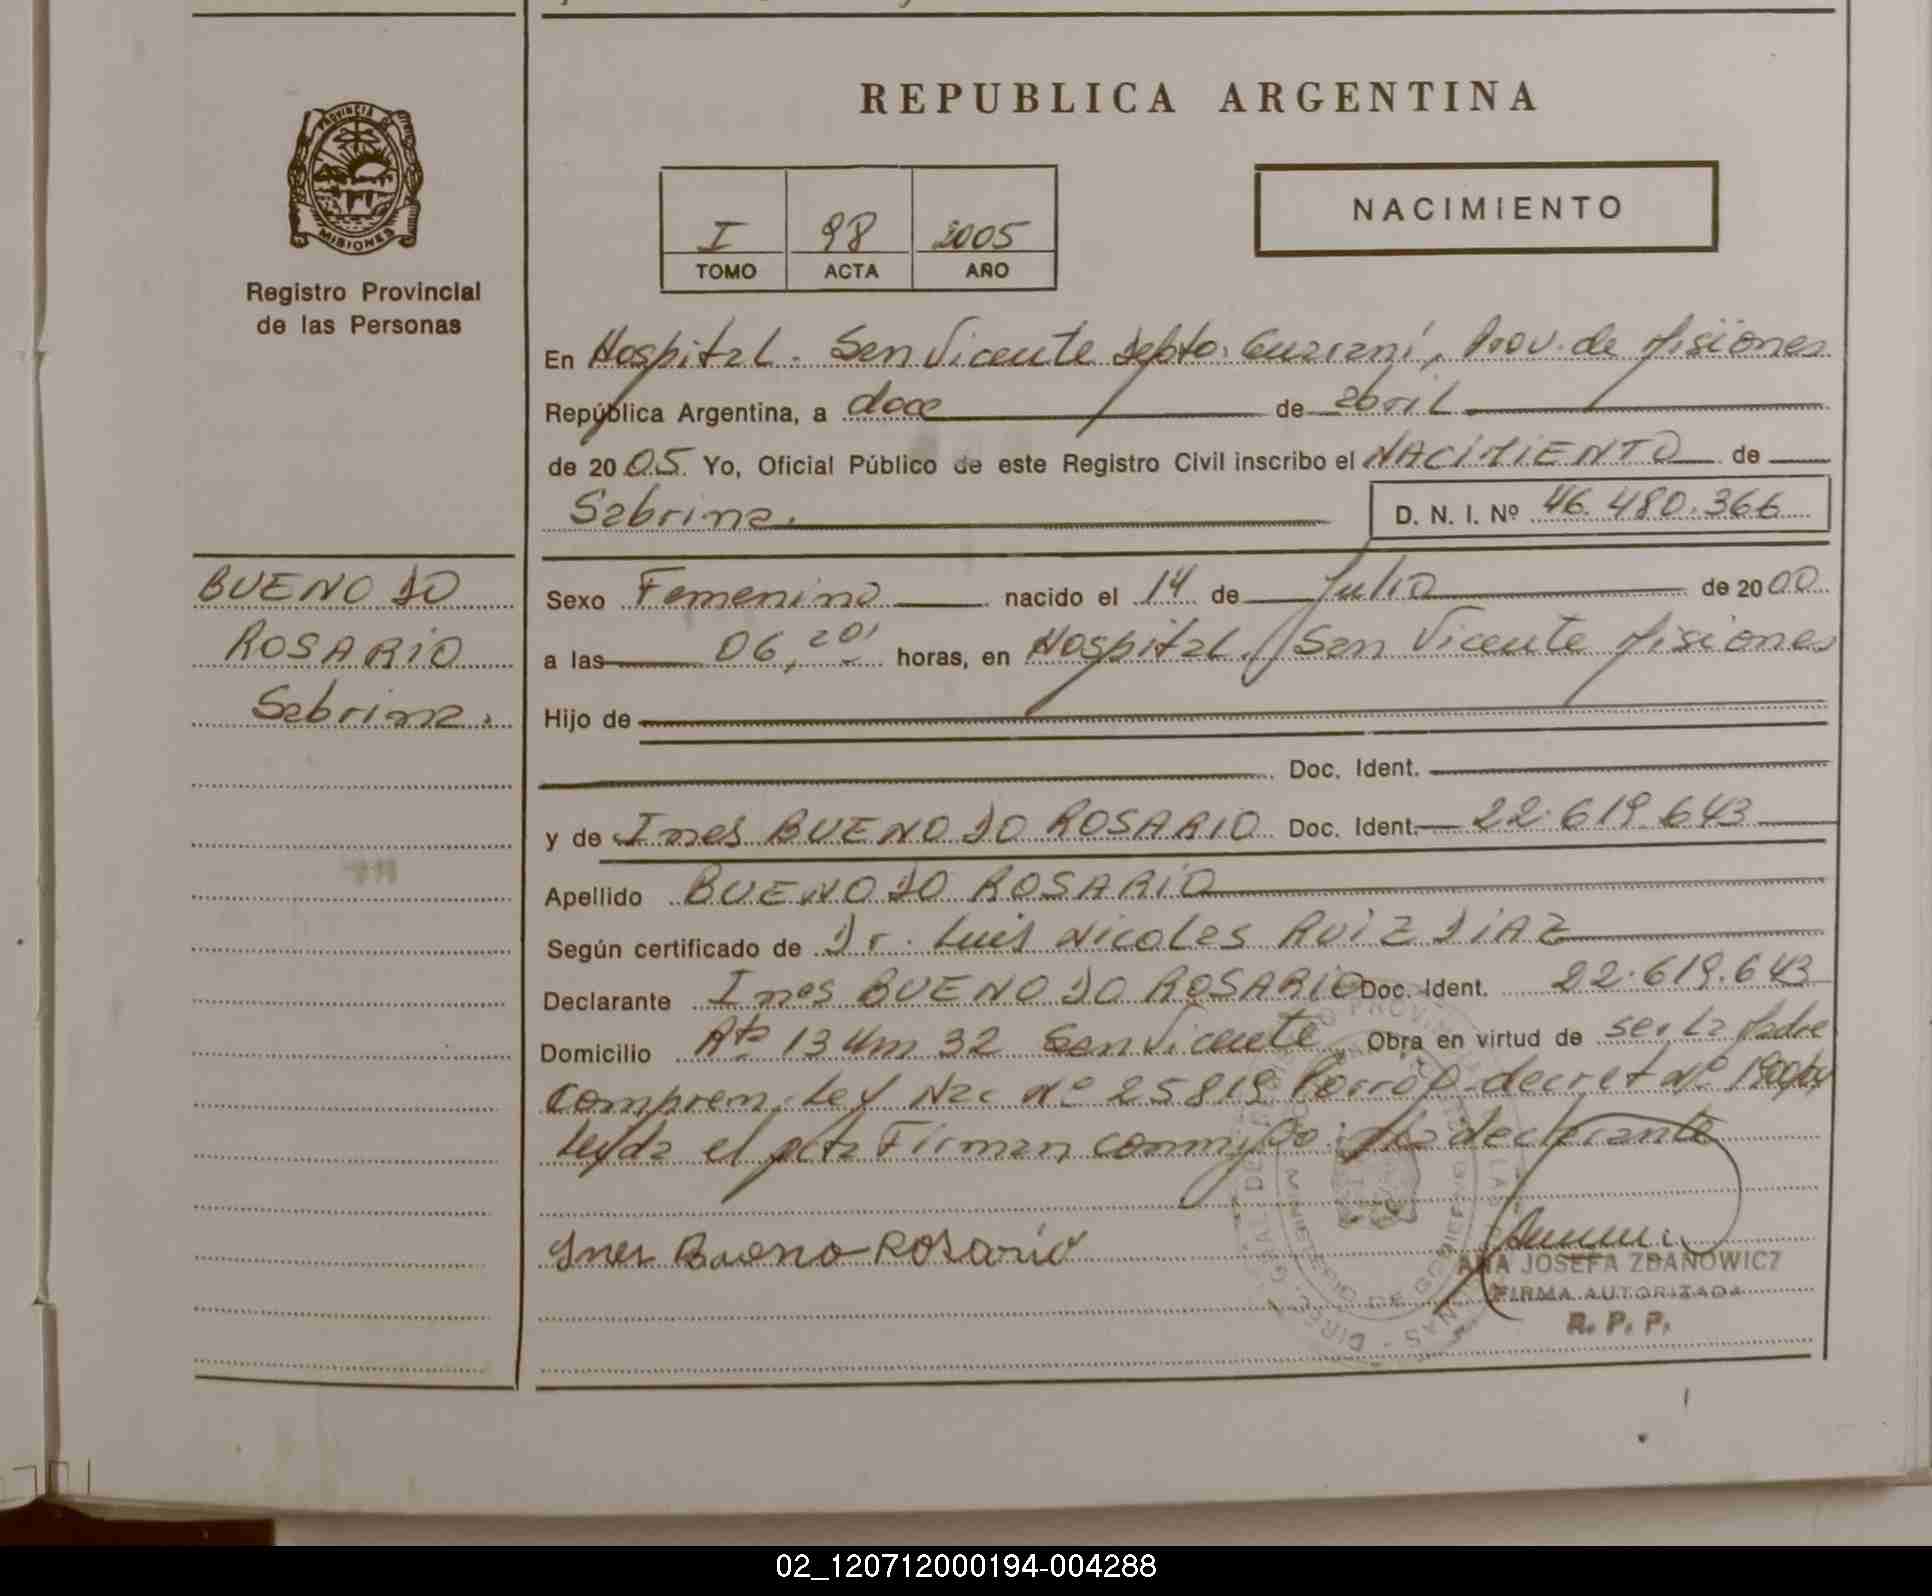 REPUBLICA ARGENTINA
PROVINCIA DE
MISIONES
Registro Provincial
de las Personas
I 98 2005
TOMO ACTA AÑO
NACIMIENTO
En Hospital - San Vicente Depto. Guaraní, Prov. de Misiones
República Argentina, a doce de abril
de 2005. Yo, Oficial Público de este Registro Civil inscribo el NACIMIENTO de
Sabrina. D. N. I. Nº 46.480.366
BUENO DO
ROSARIO
Sabrina.
Sexo Femenino nacido el 14 de Julio de 2000
a las 06,20' horas, en Hospital. San Vicente Misiones
Hijo de
Doc. Ident.
y de Ines BUENO DO ROSARIO Doc. Ident. 22.619.643
Apellido BUENO DO ROSARIO
Según certificado de Dr. Luis Nicolas RUIZ DIAZ
Declarante Ines BUENO DO ROSARIO Doc. Ident. 22.619.643
Domicilio Rta 13 Km 32 San Vicente Obra en virtud de ser la Madre
compren. Ley Nac Nº 25819 decret Nº
Leyda el acta Firman conmigo: la declarante
Ines Bueno Rosario
ANA JOSEFA ZDANOWICZ
FIRMA AUTORIZADA
R. P. P.
MINISTERIO DE GOBIERNO
02_120712000194-004288